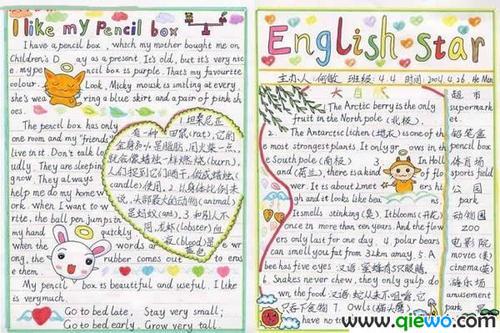 I like my Pencil box
I have a pencil box, which my mother bought me on
Children's D ay as a present. It's old, but it's very nice
e. my pencil box is purple. That's my favourite
colour. Look, Micky mouse is smiling at every
she's wearing a blue skirt and a pair of pink sh
oes.
The pencil box has only
one room and my "friends"
live in it. Don't talk lo
udly. They are sleeping
now. They always
help me do my home
work. when I want to w
rite, the ball pen jumps in
my hand
when the
things wrong
rubber comes out to
ers
My pencil box is beautiful and useful. I like
is verymuch.
Go to bed late, Stay very small;
Go to bed early. Grow very tall.
坦桑尼亚
有一种田鼠(rat),它的
全身
用火柴一点
就会像蜡烛一样燃烧(burn),
人们捉到它们
做成蜡烛
(candle)使用. 2. 以身体比例来
头部最大的动物(animal)
是蚂蚁(ant). 3. 和别人不
同, 龙虾(lobster)的
血(blood)是
蓝色
English star
主办人 何敏 班级: 4.4 时间: 2004.4.26
大自然
1. The Arctic berry is the only
fruit in the North pole (北极).
2. The Antarctic lichen (地衣) is one of the
most strongest plants. It only grows in
the South pole (南极)
3. In Holl
and (荷兰), there is a kind of
flower. It is about 2 metres
high and it looks like
Itsmells stinking (臭). It blooms (开花)
once in more than ten years. And the flower
only last for one day. 4. polar bears
can smell you fat from 32km away. 5. A
bee has five eyes 汉语 蜜蜂有5只眼睛.
6. Snakes never chew, they only gulp do
wn, the food (汉语) 蛇从来不咀嚼它
只吞下食 7. Owl (猫头鹰)
超市
supermarket
铅笔盒
pencil box
体育场
sports field
公园
park
动物园
zoo
电影院
movie
(cinema)
游乐场
www.qiewo.com